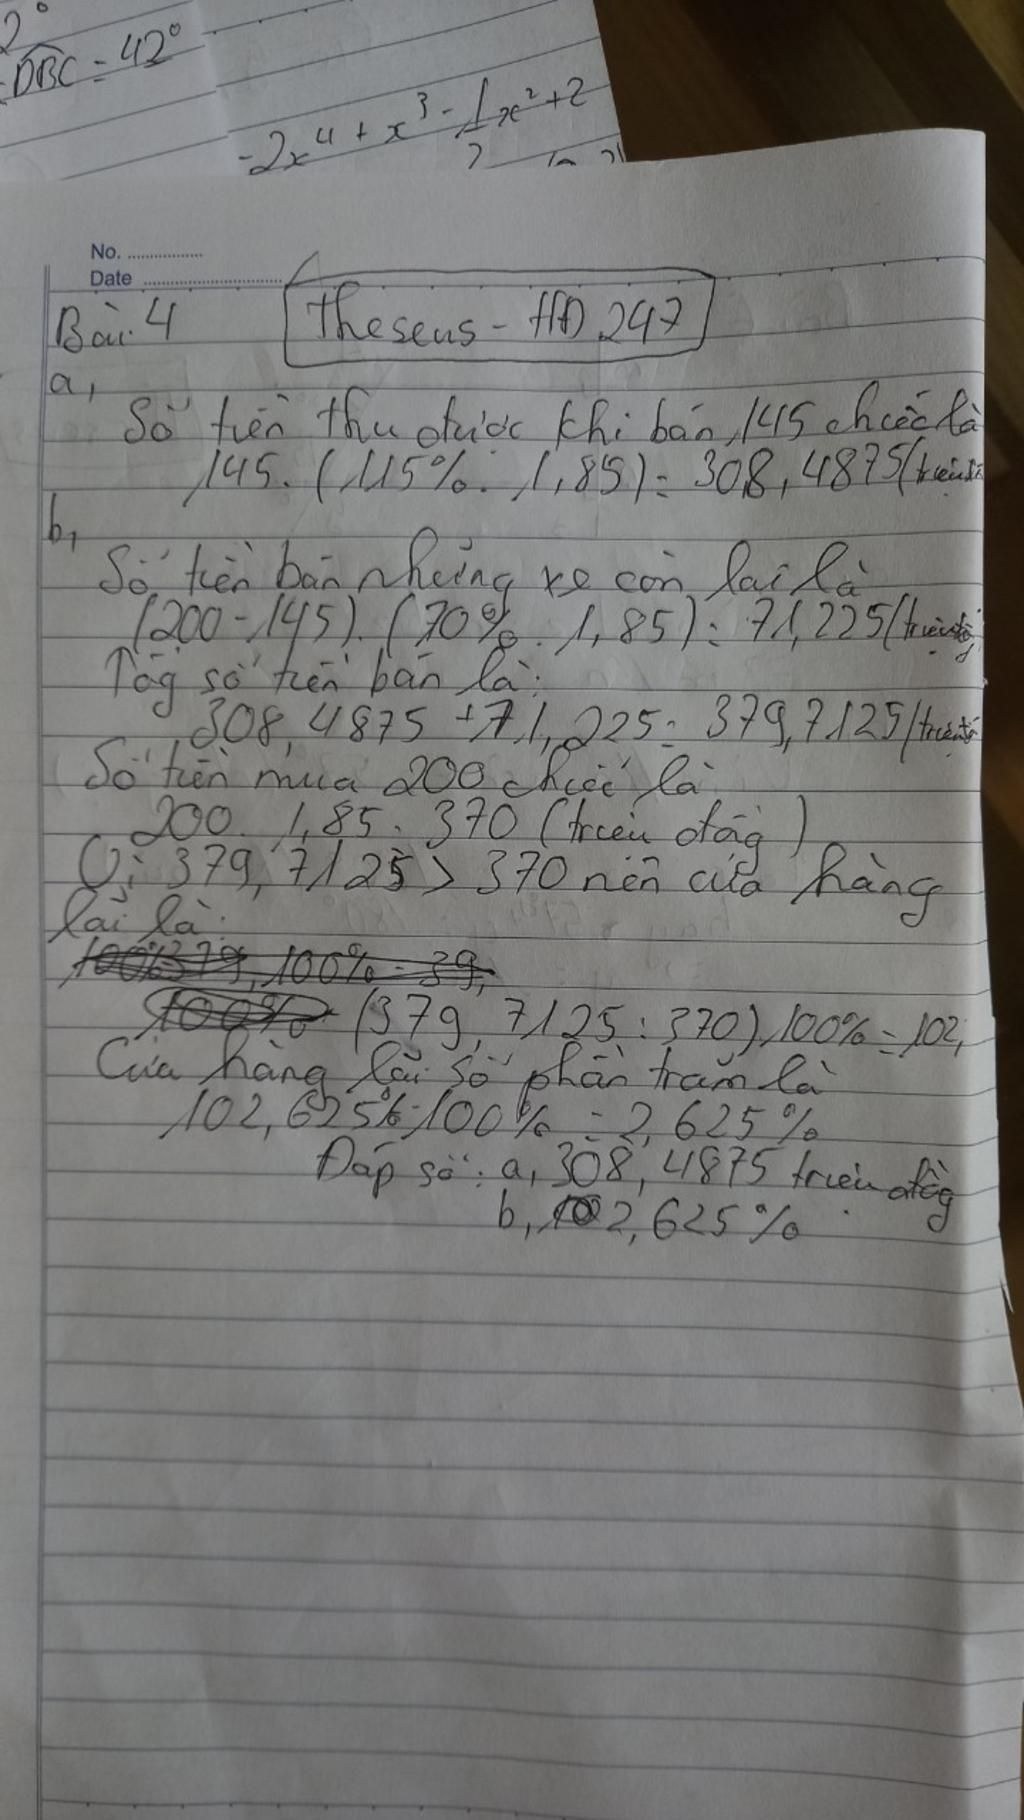 2°
DBC = 42°
-2x⁴ + x³ - 1/2 x² + 2
No.
Date
Bài 4
Theseus - HĐ 247
a,
Số tiền thu được khi bán 145 chiếc là
145. (115% . 1,85) = 308,4875 (triệu
b,
Số tiền bán những xe còn lại là
(200 - 145). (70% . 1,85) = 71,225 (triệu
Tổg số tiền bán là:
308,4875 + 71,225 = 379,7125 (triệu
Số tiền mua 200 chiếc là
200. 1,85 = 370 (triệu đồg)
Vì 379,7125 > 370 nên cửa hàng
lãi là:
(379,7125 : 370).100% = 102,
Cửa hàng lãi số phần trăm là
102,625%-100% = 2,625%
Đáp số: a, 308,4875 triệu đồg
b, 2,625%